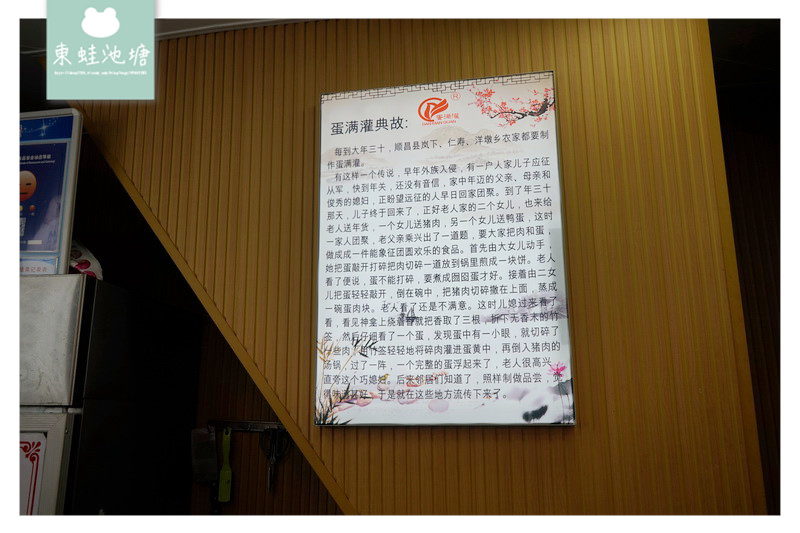 東蛙池塘
蛋满灌典故:
蛋满灌
R
每到大年三十，顺昌县岚下、仁寿、洋墩乡农家都要制
作蛋满灌。
有这样一个传说，早年外族入侵，有一户人家儿子应征
从军，快到年关，还没有音信，家中年迈的父亲、母亲和
俊秀的媳妇，正盼望远征的人早日回家团聚。到了年三十
那天，儿子终于回来了，正好老人家的二个女儿，也来给
老人送年货，一个女儿送猪肉，另一个女儿送鸭蛋，这时
一家人团聚，老父亲乘兴出了一道题，要大家把肉和蛋，
做成成一件能象征团圆欢乐的食品。首先由大女儿动手，
她把蛋敲开打碎把肉切碎一道放到锅里煎成一块饼。老人
看了便说，蛋不能打碎，要煮成囫囵蛋才好。接着由二女
儿把蛋轻轻敲开，倒在碗中，把猪肉切碎撒在上面，蒸成
一碗蛋肉块。老人看了还是不满意。这时儿媳过来看了
看，看见神龛上烧着香就把香取了三根，折下无香末的竹
签，然后仔细看了一个蛋，发现蛋中有一小眼，就切碎了
一些肉，用竹签轻轻地将碎肉灌进蛋黄中，再倒入猪肉的
汤锅，过了一阵，一个完整的蛋浮起来了，老人很高兴，
直夸这个巧媳妇。后来邻居们知道了，照样制做品尝，觉
得味道甚好，于是就在这些地方流传下来了。